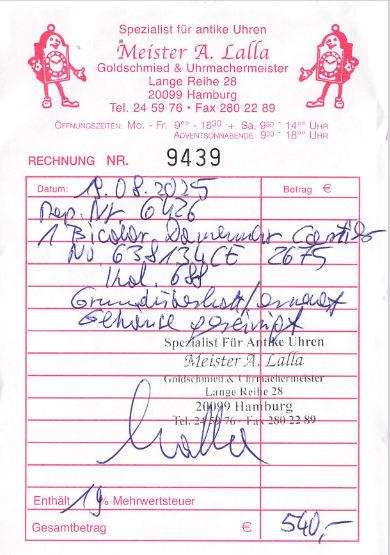 Spezialist für antike Uhren
Meister A. Lalla
Goldschmied & Uhrmachermeister
Lange Reihe 28
20099 Hamburg
Tel. 24 59 76 • Fax 280 22 89
ÖFFNUNGSZEITEN: Mo. - Fr. 9⁰⁰ - 18³⁰ + Sa. 9³⁰ - 14⁰⁰ UHR
ADVENTSONNABENDE 9³⁰ - 18⁰⁰ UHR
RECHNUNG NR. 9439
Datum: .08.2025 Betrag €
Rep. Nr 6426
1 Bicolor Damenuhr
No. 638134CE 2675
Kal. 688
Gehäuse gereinigt
Spezialist Für Antike Uhren
Meister A. Lalla
Goldschmied & Uhrmachermeister
Lange Reihe 28
20099 Hamburg
Tel. 24 59 76 - Fax 280 22 89
Enthält 19 % Mehrwertsteuer
Gesamtbetrag € 540,-